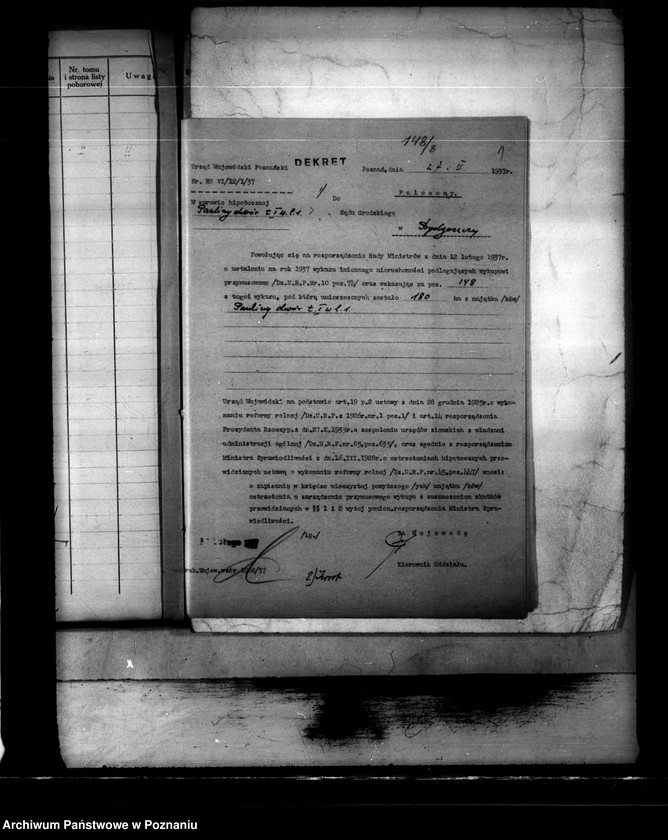 Nr. tomu
i strona listy
poborowej
Uwag
148/8
1
DEKRET
Urząd Wojewódzki Poznański
Poznań,dnia 27. II 1937r.
Nr. RU VI/12/1/37
Polecony.
W sprawie hipotecznej
Do
Pauliny dwór t I w.l.1.
Sądu Grodzkiego
w Bydgoszczy
Powołując się na rozporządzenie Rady Ministrów z dnia 12 lutego 1937r.
o ustaleniu na rok 1937 wykazu imiennego nieruchomości podlegających wykupowi
przymusowemu /Dz.U.R.P.Nr.10 poz.74/ oraz wskazując na poz. 148
z tegoż wykazu, pod którą umieszczonych zostało 180 ha z majątku /ów/
Pauliny dwór t. I w l. 1.
Urząd Wojewódzki na podstawie art.19 p.2 ustawy z dnia 28 grudnia 1925r.o wyko-
naniu reformy rolnej /Dz.U.R.P.z 1926r.nr.1 poz.1/ i art.14 rozporządzenia
Prezydenta Rzeczyp.z dn.27.X.1933r.o zespoleniu urzędów ziemskich z władzami
administracji ogólnej /Dz.U.R.P.nr.85,poz.635/, oraz zgodnie z rozporządzeniem
Ministra Sprawiedliwości z dn.16.XII.1928r.o ostrzeżeniach hipotecznych prze-
widzianych ustawą o wykonaniu reformy rolnej /Dz.U.R.P.nr.45.poz.447/ wnosi:
o zapisanie w księdze wieczystej powyższego /ych/ majątku /ów/
ostrzeżenia o zarządzeniu przymusowego wykupu z zaznaczeniem skutków
przewidzianych w §§ 1 i 2 wyżej pomien.rozporządzenia Ministra Spra-
wiedliwości.
za Wojewodę
Kierownik Oddziału.
Archiwum Państwowe w Poznaniu